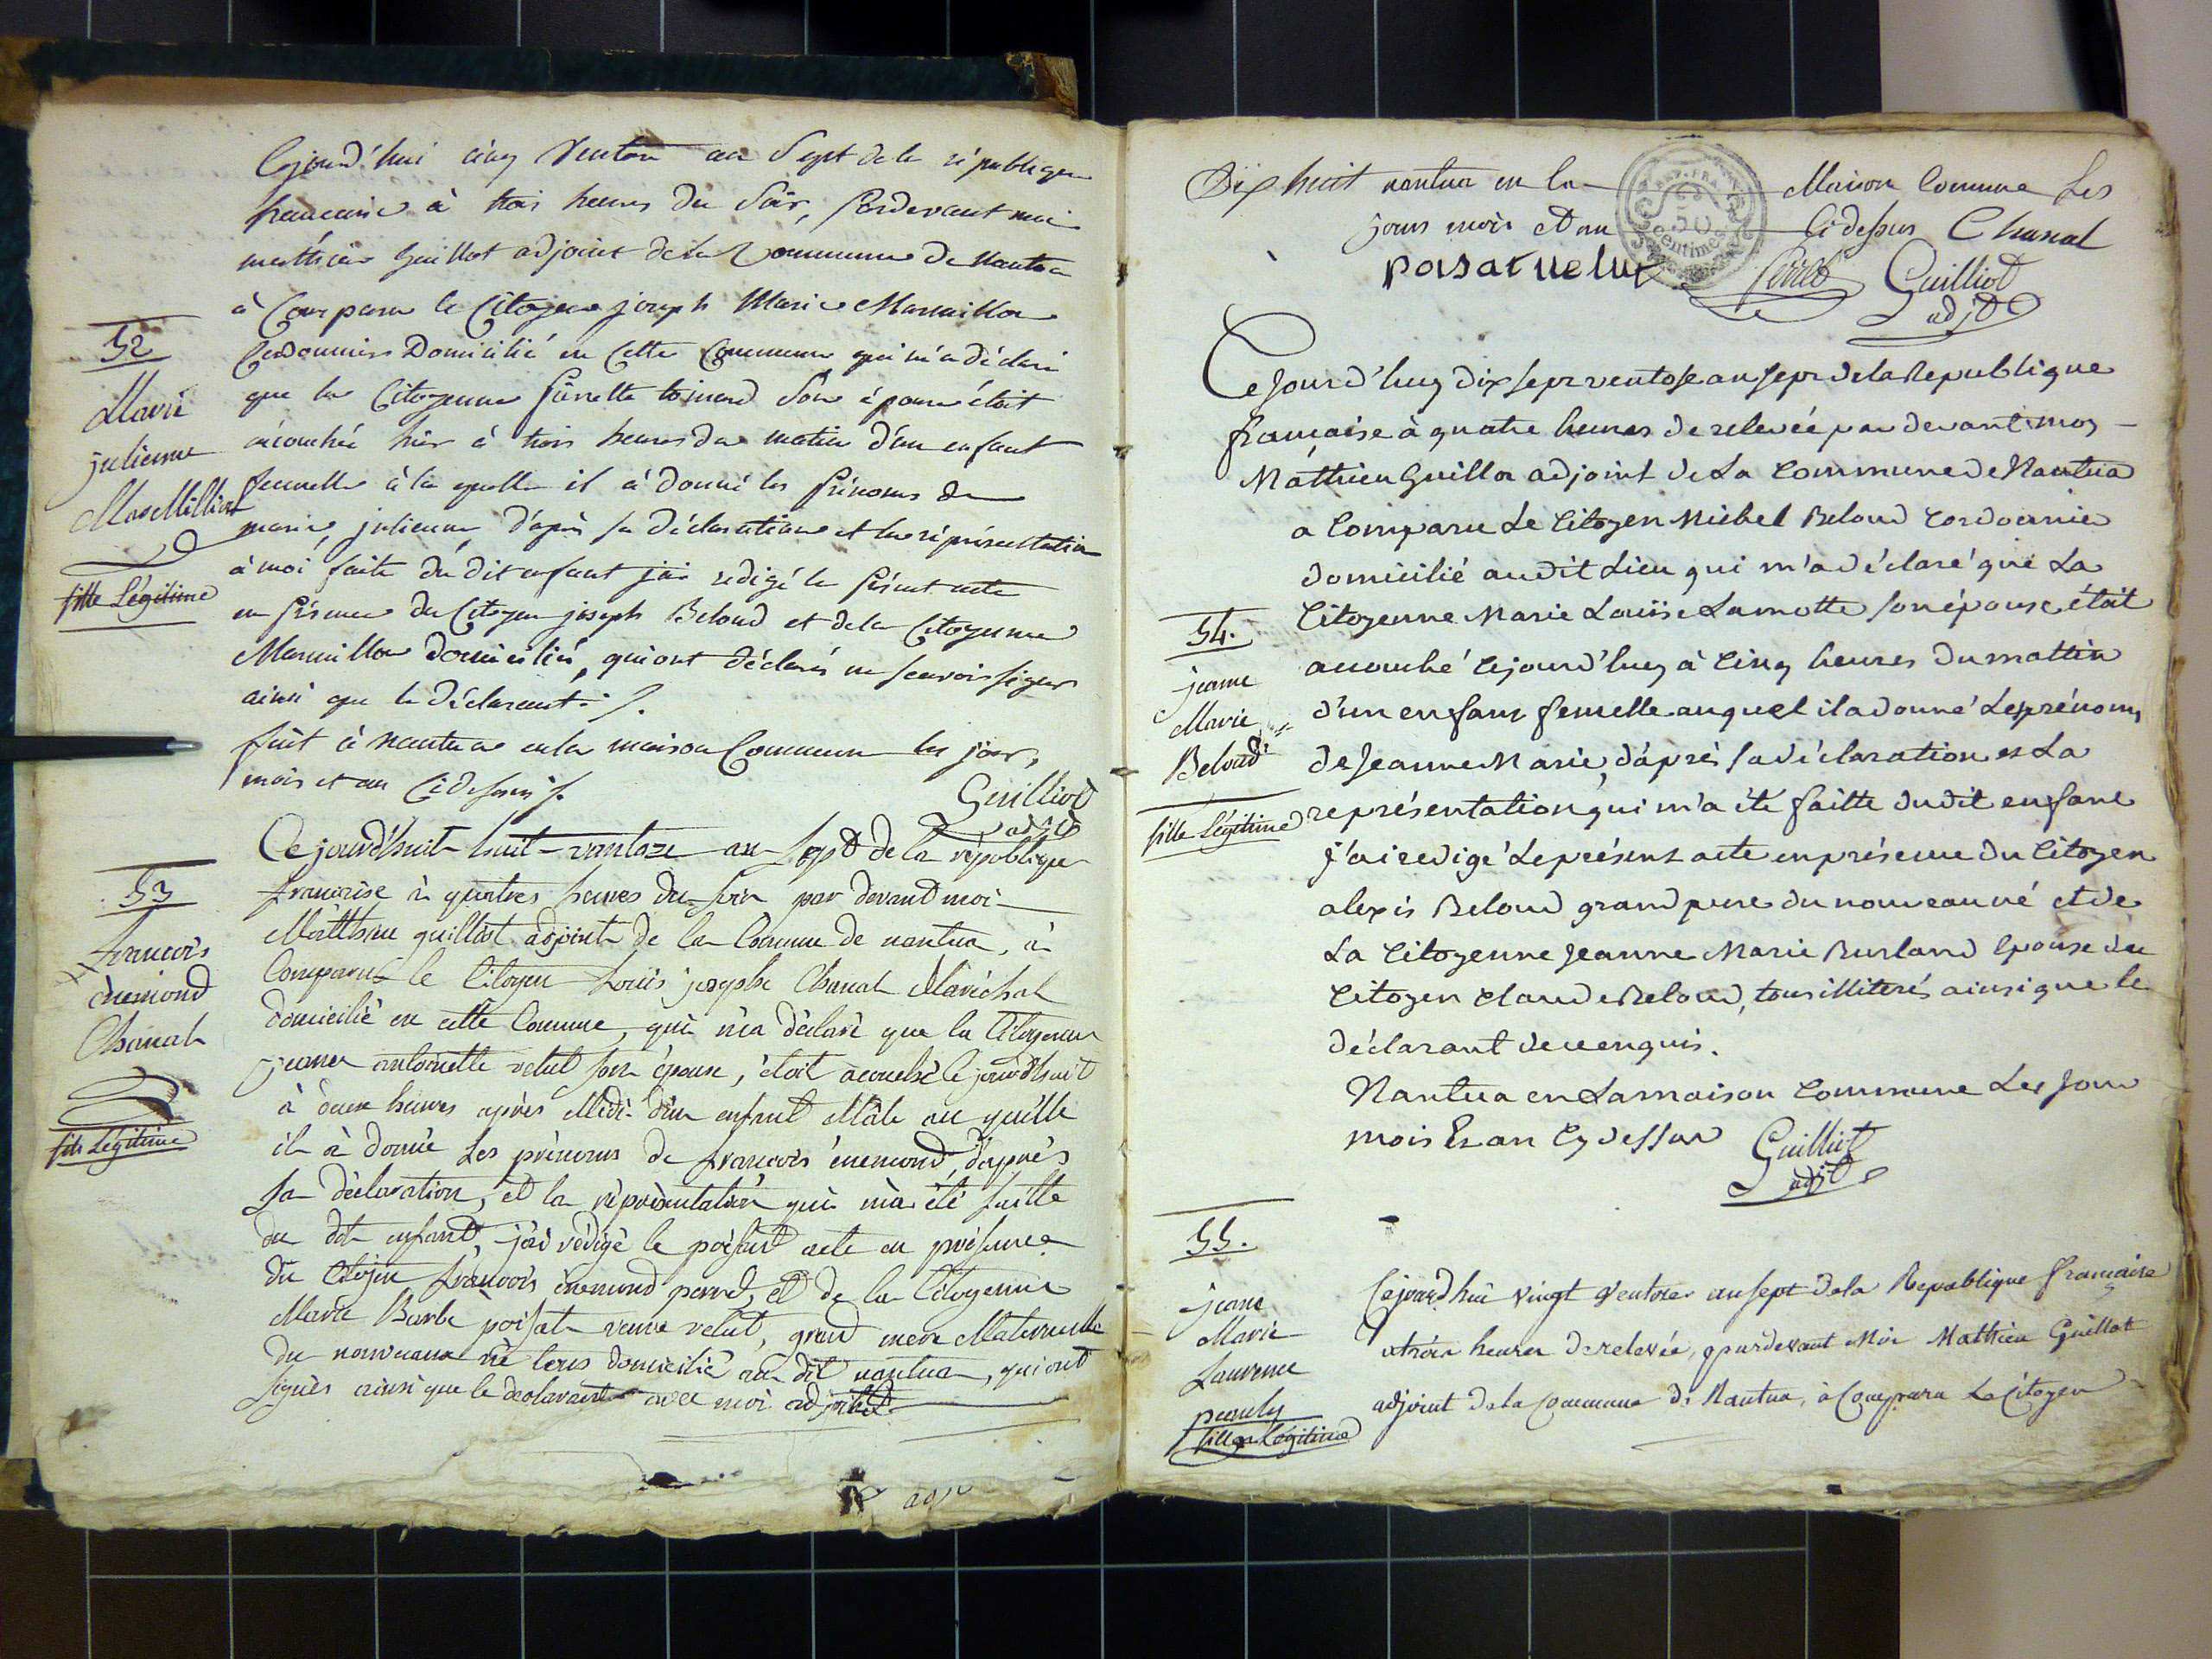 Cejourd'hui cinq Ventose an Sept de la république
francaise à trois heures du Soir, Pardevant moi
matthieu Guillot adjoint de la Commune de Nantua
à Comparu le Citoyen joseph Marie Marmillon
52
Cordonnier Domicilié en Cette Commune qui m'a déclaré
Marie
que la Citoyenne Pierrette son épouse était
julienne
acouchée hier à trois heures du matin d'un enfant
MarMilliot
femelle à la quelle il à donné les Prénoms de
marie, julienne, d'après sa déclaration et la réprésentation
fille Légitime
à moi faite du dit enfant j'ai redigé le Présent acte
en Présence du Citoyen joseph Beloud et de la Citoyenne
Marmillon domiciliés, qui ont déclarés ne scavoir signer
ainsi que le déclarant ./.
fait à nantua en la maison Commune les jour,
mois et an Cidessus ./.
Guilliot
adjt
Ce jourd'huit huit vantoze an Sept de la république
53
francaise à quatres heures du soir par devant moi
francois
Matthieu guilliot adjoint de la Comune de nantua, à
ènemond
Comparut le Citoyen Louis josephe Chanal Maréchal
Chanal
domicilié en cette Comune, qui m'a déclaré que la Citoyenne
jeanne antoinette velut son épouse, étoit acouché ce jourd'huit
à deux heures après Midi d'un enfant Mâle au quelle
fils Légitime
il à donné Les prénoms de francois énemond, d'apprés
Sa déclaration, et la réprésentation qui m'a été faitte
du dit enfant, j'ai rédigé le présent acte en présence
du Citoyen francois énemond perret, et de la Citoyenne
Marie Barbe poisat veuve velut, grand mere Maternelle
du nouveaux né tous domicilié au dit nantua, qui ont
signés ainsi que le déclarant avec moi adjoint
Dix huit nantua en la Maison Comune Les
REP. FRA.
50
Centimes
jours mois et an Cidessus Chanal
poisat velut Perret Guilliot
adjt
Ce Jourd'huy dix sept ventose an sept de la Republique
française à quatre heures de relevée par devant moy
Mathieu Guillot adjoint de La Commune de Nantua
a Comparu Le Citoyen Michel Beloud Cordonnié
domicilié audit Lieu qui m'a déclaré que La
54.
Citoyenne Marie Louise Lamotte son épouse était
jeanne
acouché Cejourd'huy à Cinq heures du mattin
Marie
d'un enfant femelle auquel il a donné Les prénoms
Beloud
de Jeanne Marie, d'après sa déclaration et La
fille Légitime
représentation qui m'a été faitte dudit enfant
j'ai redigé Le présent acte en présence du Citoyen
alexis Beloud grand pere du nouveau né et de
La Citoyenne Jeanne Marie Burland Epouse du
Citoyen Claude Beloud, tous illiterés ainsi que le
déclarant de ce enquis.
Nantua en La maison Commune Les Jour
mois Et an Cy dessus Guilliot
adjt
55.
jeane
Marie
Laurence
pauly
fille Légitime
Cejourd'hui vingt Ventose an sept de la Republique française
a trois heures de relevée, pardevant Moi Mathieu Guillot
adjoint de la Commune de Nantua, à Comparu Le Citoyen